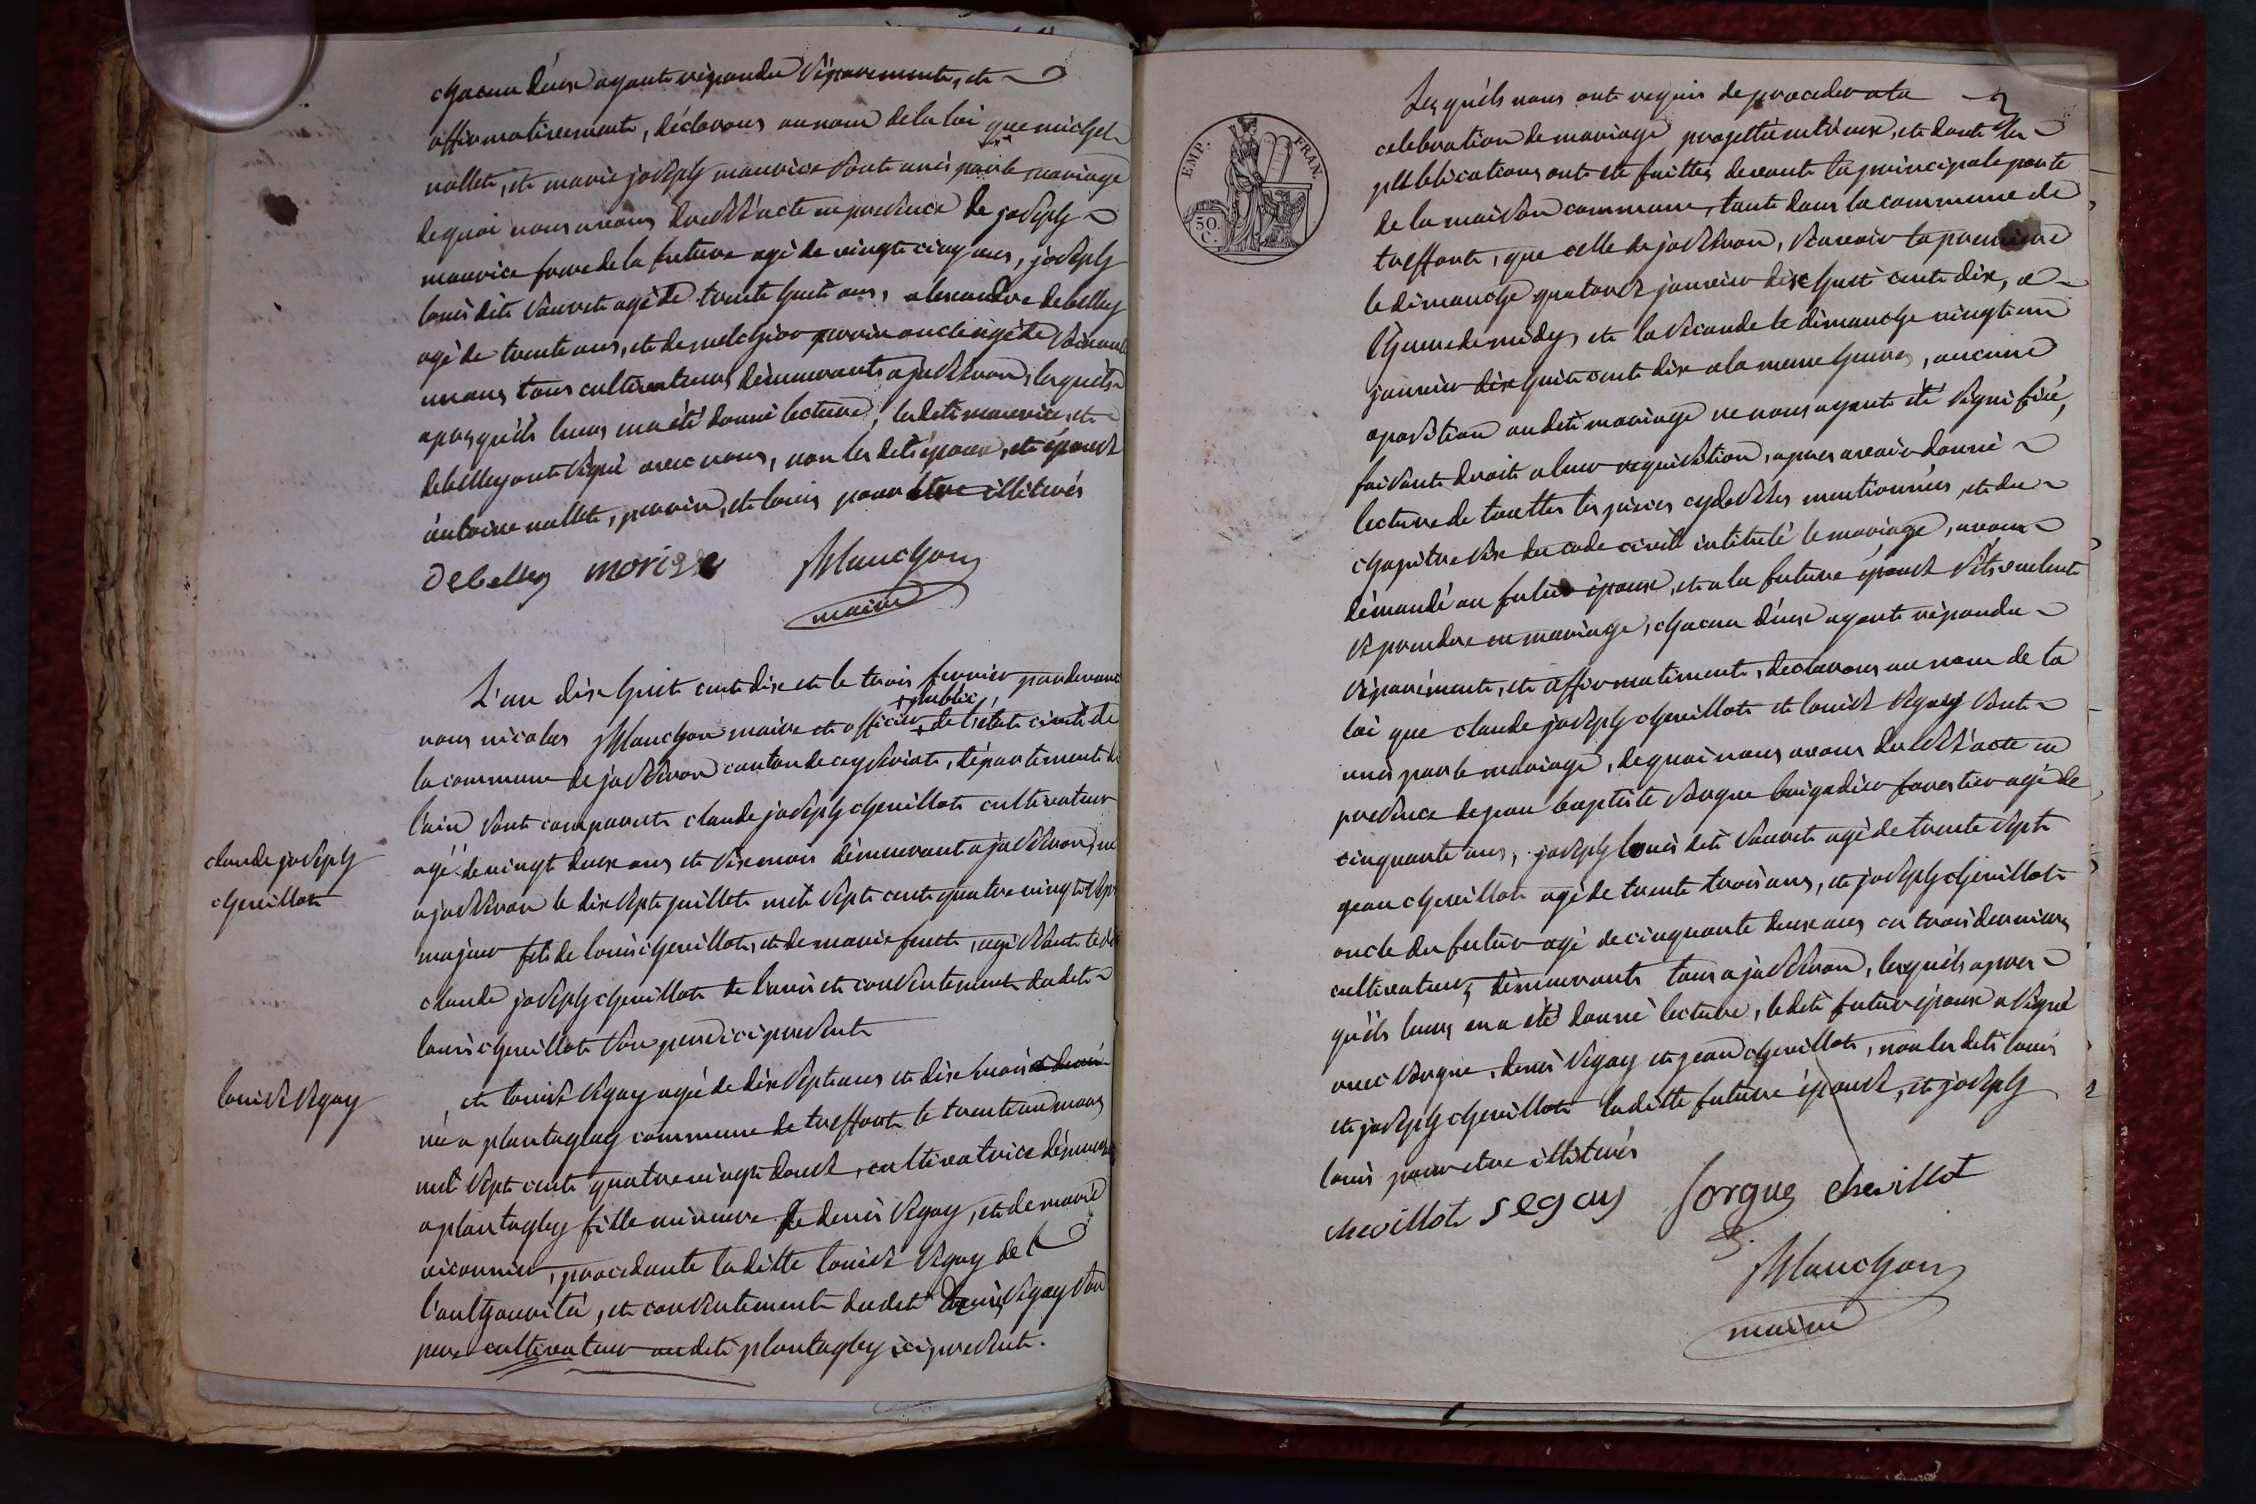 chacun d'eux ayant répondu séparement, et
affirmativement, déclarons au nom de la loi que michel
nallet, et marie joseph maurice sont unis par le mariage
de quoi nous avons dressé acte en presence de joseph
maurice frere de la future agé de vingt cinq ans, joseph
louis dit sauvet agé de trente huit ans, alexandre debelley
agé de trente ans, et de melchior perrin oncle agé de soixante
un ans tous cultivateurs démeurants a jasseron, lesquels
apres qu'ils leurs en a été donné lecture, lesdits maurice, et
debelley ont signé avec nous, non lesdits époux, et épouse
antoine nallet, perrin, et louis pour être illiterés
Debelley morisse Planchon
maire
L'an dix huit cent dix et le trois fevrier pardevant
+ public
nous nicolas Planchon maire et officier + de l'état civil de
la commune de jasseron canton de ceyseriat, département de
l'ain sont comparut claude joseph chevillot cultivateur
agé de vingt deux ans et six mois démeurant a jasseron, né
a jasseron le dix sept juillet mil sept cent quatre vingt sept
majeur fils de louis chevillot, et de marie feret, agissant ledit
claude joseph chevillot de l'avis et consentement dudit
louis chevillot son pere ici present
claude joseph
chevillot
et louise segay agé de dix sept ans et dix mois
née a plantaglay commune de treffort le trente un mars
mil sept cent quatre vingt douze, cultivatrice démeurant
a plantagley fille mineure de denis segay, et de marie
viconnier, procedante laditte louise segay de l
l'aulthourité, et consentement dudit denis segay son
pere cultivateur audit plantagley ici present.
louise segay
EMP. FRAN.
50.
C.
Lesquéls nous ont requis de proceder a la
celebration de mariage projetté entre eux, et dont les
publications ont été faittes devant la principale porte
de la maison commune, tant dans la commune de
treffort, que celle de jasseron, sçavoir la premiere
le dimanche quatorze janvier dix huit cent dix, a
l'heure de midy, et la seconde le dimanche vingt un
janvier dix huit cent dix a la meme heure, aucune
oposition audit mariage ne nous ayant été signifiée,
faisant droit a leur requisition, apres avoir donné
lecture de touttes les pieces cydessus mentionnées, et du
chapitre six du code civil intitulé le mariage, avons
démandé au futur époux, et a la future épouse s'ils veulent
se prendre en mariage, chacun d'eux ayant répondu
séparément, et affirmatiment, declarons au nom de la
loi que claude joseph chevillot et louise segay sont
unis par le mariage, de quoi nous avons dressé acte en
presence de jean baptiste sorgue brigadier forestier agé de
cinquante ans, joseph louis dit sauvet agé de trente sept
jean chevillot agé de trente trois ans, et joseph chevillot
oncle du futur agé de cinquante deux ans ces trois derniers
cultivateurs démeurants tous a jasseron, lesquéls apres
qu'ils leurs en a été donné lecture, ledit futur époux a signé
avec sorgue, denis segay et jean chevillot, non lesdits louis
et joseph chevillot laditte future épouse, et joseph
louis pour etre illiterés
chevillot segay Sorgue chevillot
Planchon
maire